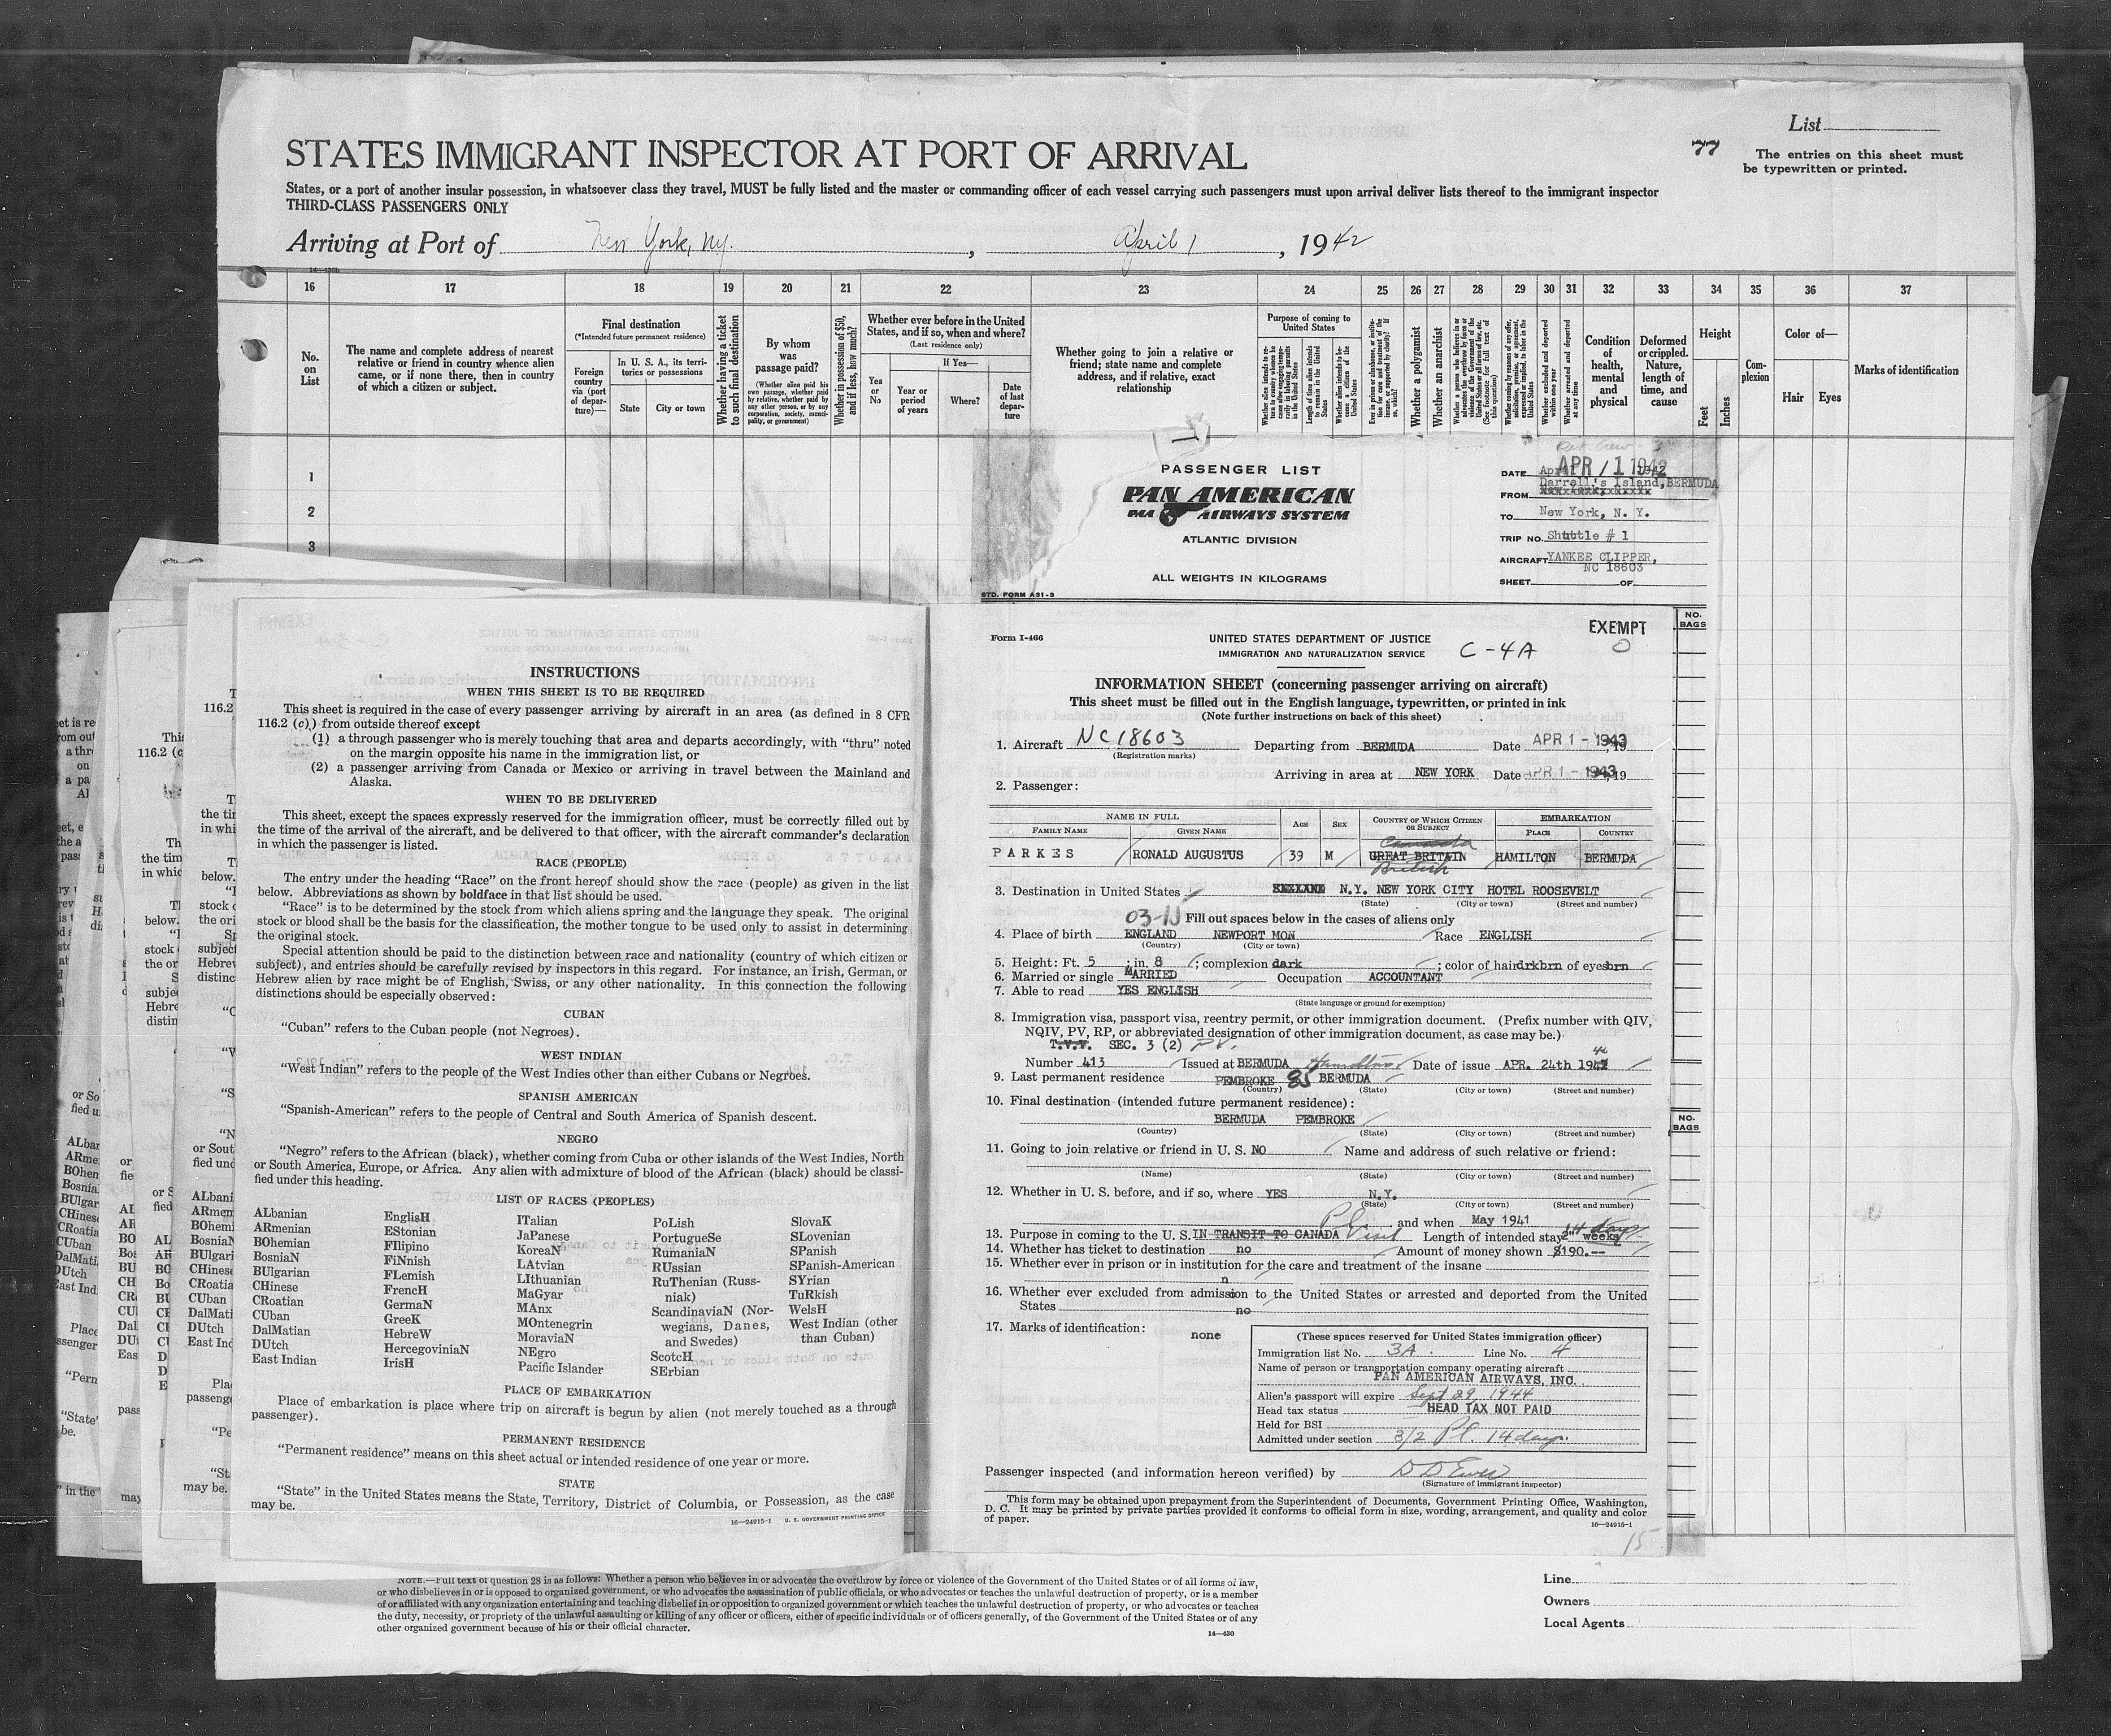 List
77
The entries on this sheet must
be typewritten or printed.
STATES IMMIGRANT INSPECTOR AT PORT OF ARRIVAL
States, or a port of another insular possession, in whatsoever class they travel, MUST be fully listed and the master or commanding officer of each vessel carrying such passengers must upon arrival deliver lists thereof to the immigrant inspector
THIRD-CLASS PASSENGERS ONLY
Arriving at Port of New York, Ny. , April 1 , 1942
16 17 18 19 20 21 22 23 24 25 26 27 28 29 30 31 32 33 34 35 36 37
No. on List
The name and complete address of nearest relative or friend in country whence alien came, or if none there, then in country of which a citizen or subject.
Final destination
(*Intended future permanent residence)
Foreign country via (port of departure)—
In U. S. A., its territories or possessions
State
City or town
Whether having a ticket to such final destination
By whom was passage paid?
(Whether alien paid his own passage, whether paid by relative, whether paid by any other person, or by any corporation, society, municipality, or government)
Whether in possession of $50, and if less, how much?
Whether ever before in the United States, and if so, when and where?
(Last residence only)
Yes or No
If Yes—
Year or period of years
Where?
Date of last departure
Whether going to join a relative or friend; state name and complete address, and if relative, exact relationship
Purpose of coming to United States
Whether a polygamist
Whether an anarchist
Condition of health, mental and physical
Deformed or crippled. Nature, length of time, and cause
Height
Feet
Inches
Complexion
Color of—
Hair
Eyes
Marks of identification
1
2
3
PASSENGER LIST
PAN AMERICAN
PAA AIRWAYS SYSTEM
ATLANTIC DIVISION
ALL WEIGHTS IN KILOGRAMS
STD. FORM A31-3
DATE April APR / 1 1942
FROM Darrell's Island, BERMUDA
TO New York, N. Y.
TRIP NO. Shuttle # 1
AIRCRAFT YANKEE CLIPPER,
NC 18603
SHEET OF
NO. BAGS
NO. BAGS
INSTRUCTIONS
WHEN THIS SHEET IS TO BE REQUIRED
This sheet is required in the case of every passenger arriving by aircraft in an area (as defined in 8 CFR
116.2 (c),) from outside thereof except
(1) a through passenger who is merely touching that area and departs accordingly, with “thru” noted
on the margin opposite his name in the immigration list, or
(2) a passenger arriving from Canada or Mexico or arriving in travel between the Mainland and
Alaska.
WHEN TO BE DELIVERED
This sheet, except the spaces expressly reserved for the immigration officer, must be correctly filled out by
the time of the arrival of the aircraft, and be delivered to that officer, with the aircraft commander's declaration
in which the passenger is listed.
RACE (PEOPLE)
The entry under the heading “Race” on the front hereof should show the race (people) as given in the list
below. Abbreviations as shown by boldface in that list should be used.
“Race” is to be determined by the stock from which aliens spring and the language they speak. The original
stock or blood shall be the basis for the classification, the mother tongue to be used only to assist in determining
the original stock.
Special attention should be paid to the distinction between race and nationality (country of which citizen or
subject), and entries should be carefully revised by inspectors in this regard. For instance, an Irish, German, or
Hebrew alien by race might be of English, Swiss, or any other nationality. In this connection the following
distinctions should be especially observed:
CUBAN
“Cuban” refers to the Cuban people (not Negroes).
WEST INDIAN
“West Indian” refers to the people of the West Indies other than either Cubans or Negroes.
SPANISH AMERICAN
“Spanish-American” refers to the people of Central and South America of Spanish descent.
NEGRO
“Negro” refers to the African (black), whether coming from Cuba or other islands of the West Indies, North
or South America, Europe, or Africa. Any alien with admixture of blood of the African (black) should be classi-
fied under this heading.
LIST OF RACES (PEOPLES)
ALbanian
ARmenian
BOhemian
BosniaN
BUlgarian
CHinese
CRoatian
CUban
DalMatian
DUtch
East Indian
EnglisH
EStonian
FIlipino
FiNnish
FLemish
FrencH
GermaN
GreeK
HebreW
HercegoviniaN
IrisH
ITalian
JaPanese
KoreaN
LAtvian
LIthuanian
MaGyar
MAnx
MOntenegrin
MoraviaN
NEgro
Pacific Islander
PoLish
PortugueSe
RumaniaN
RUssian
RuThenian (Russ-
niak)
ScandinaviaN (Nor-
wegians, Danes,
and Swedes)
ScotcH
SErbian
SlovaK
SLovenian
SPanish
SPanish-American
SYrian
TuRkish
WelsH
West Indian (other
than Cuban)
PLACE OF EMBARKATION
Place of embarkation is place where trip on aircraft is begun by alien (not merely touched as a through
passenger).
PERMANENT RESIDENCE
“Permanent residence” means on this sheet actual or intended residence of one year or more.
STATE
“State” in the United States means the State, Territory, District of Columbia, or Possession, as the case
may be.
16—24915-1 U. S. GOVERNMENT PRINTING OFFICE
Form I-466
UNITED STATES DEPARTMENT OF JUSTICE
IMMIGRATION AND NATURALIZATION SERVICE
C-4A
EXEMPT
0
INFORMATION SHEET (concerning passenger arriving on aircraft)
This sheet must be filled out in the English language, typewritten, or printed in ink
(Note further instructions on back of this sheet)
1. Aircraft NC18603 Departing from BERMUDA Date APR 1 - 1943, 19
(Registration marks)
Arriving in area at NEW YORK Date APR 1 - 1943, 19
2. Passenger:
NAME IN FULL
AGE SEX COUNTRY OF WHICH CITIZEN OR SUBJECT EMBARKATION
FAMILY NAME GIVEN NAME PLACE COUNTRY
Canada
PARKES RONALD AUGUSTUS 39 M GREAT BRITAIN HAMILTON BERMUDA
British
3. Destination in United States N.Y. NEW YORK CITY HOTEL ROOSEVELT
(State) (City or town) (Street and number)
03-11 Fill out spaces below in the cases of aliens only
4. Place of birth ENGLAND NEWPORT MON Race ENGLISH
(Country) (City or town)
5. Height: Ft. 5 ; in. 8 ; complexion dark ; color of hair drkbrn of eyes brn
6. Married or single MARRIED Occupation ACCOUNTANT
7. Able to read YES ENGLISH
(State language or ground for exemption)
8. Immigration visa, passport visa, reentry permit, or other immigration document. (Prefix number with QIV,
NQIV, PV, RP, or abbreviated designation of other immigration document, as case may be.)
T.V.V. SEC. 3 (2) PV.
Number 413 Issued at BERMUDA Hamilton Date of issue APR. 24th 1942
9. Last permanent residence PEMBROKE 85 BERMUDA
(Country) (State) (City or town) (Street and number)
10. Final destination (intended future permanent residence):
BERMUDA PEMBROKE
(Country) (State) (City or town) (Street and number)
11. Going to join relative or friend in U. S. NO Name and address of such relative or friend:
(Name) (State) (City or town) (Street and number)
12. Whether in U. S. before, and if so, where YES N.Y.
(State) (City or town) (Street and number)
Pl. and when May 1941
13. Purpose in coming to the U. S. IN TRANSIT TO CANADA Visit Length of intended stay 2" weeks 14 days
14. Whether has ticket to destination no Amount of money shown $190.--
15. Whether ever in prison or in institution for the care and treatment of the insane
n
16. Whether ever excluded from admission to the United States or arrested and deported from the United
States no
17. Marks of identification: none
(These spaces reserved for United States immigration officer)
Immigration list No. 3A. Line No. 4
Name of person or transportation company operating aircraft
PAN AMERICAN AIRWAYS, INC.
Alien's passport will expire Sept 29, 1944
Head tax status HEAD TAX NOT PAID
Held for BSI
Admitted under section 3/2 Pl. 14 days.
Passenger inspected (and information hereon verified) by
(Signature of immigrant inspector)
This form may be obtained upon prepayment from the Superintendent of Documents, Government Printing Office, Washington,
D. C. It may be printed by private parties provided it conforms to official form in size, wording, arrangement, and quality and color
of paper.
16—24915-1
15
NOTE.—Full text of question 28 is as follows: Whether a person who believes in or advocates the overthrow by force or violence of the Government of the United States or of all forms of law,
or who disbelieves in or is opposed to organized government, or who advocates the assassination of public officials, or who advocates or teaches the unlawful destruction of property, or is a member
of or affiliated with any organization entertaining and teaching disbelief in or opposition to organized government or which teaches the unlawful destruction of property, or who advocates or teaches
the duty, necessity, or propriety of the unlawful assaulting or killing of any officer or officers, either of specific individuals or of officers generally, of the Government of the United States or of any
other organized government because of his or their official character.
14—430
Line
Owners
Local Agents